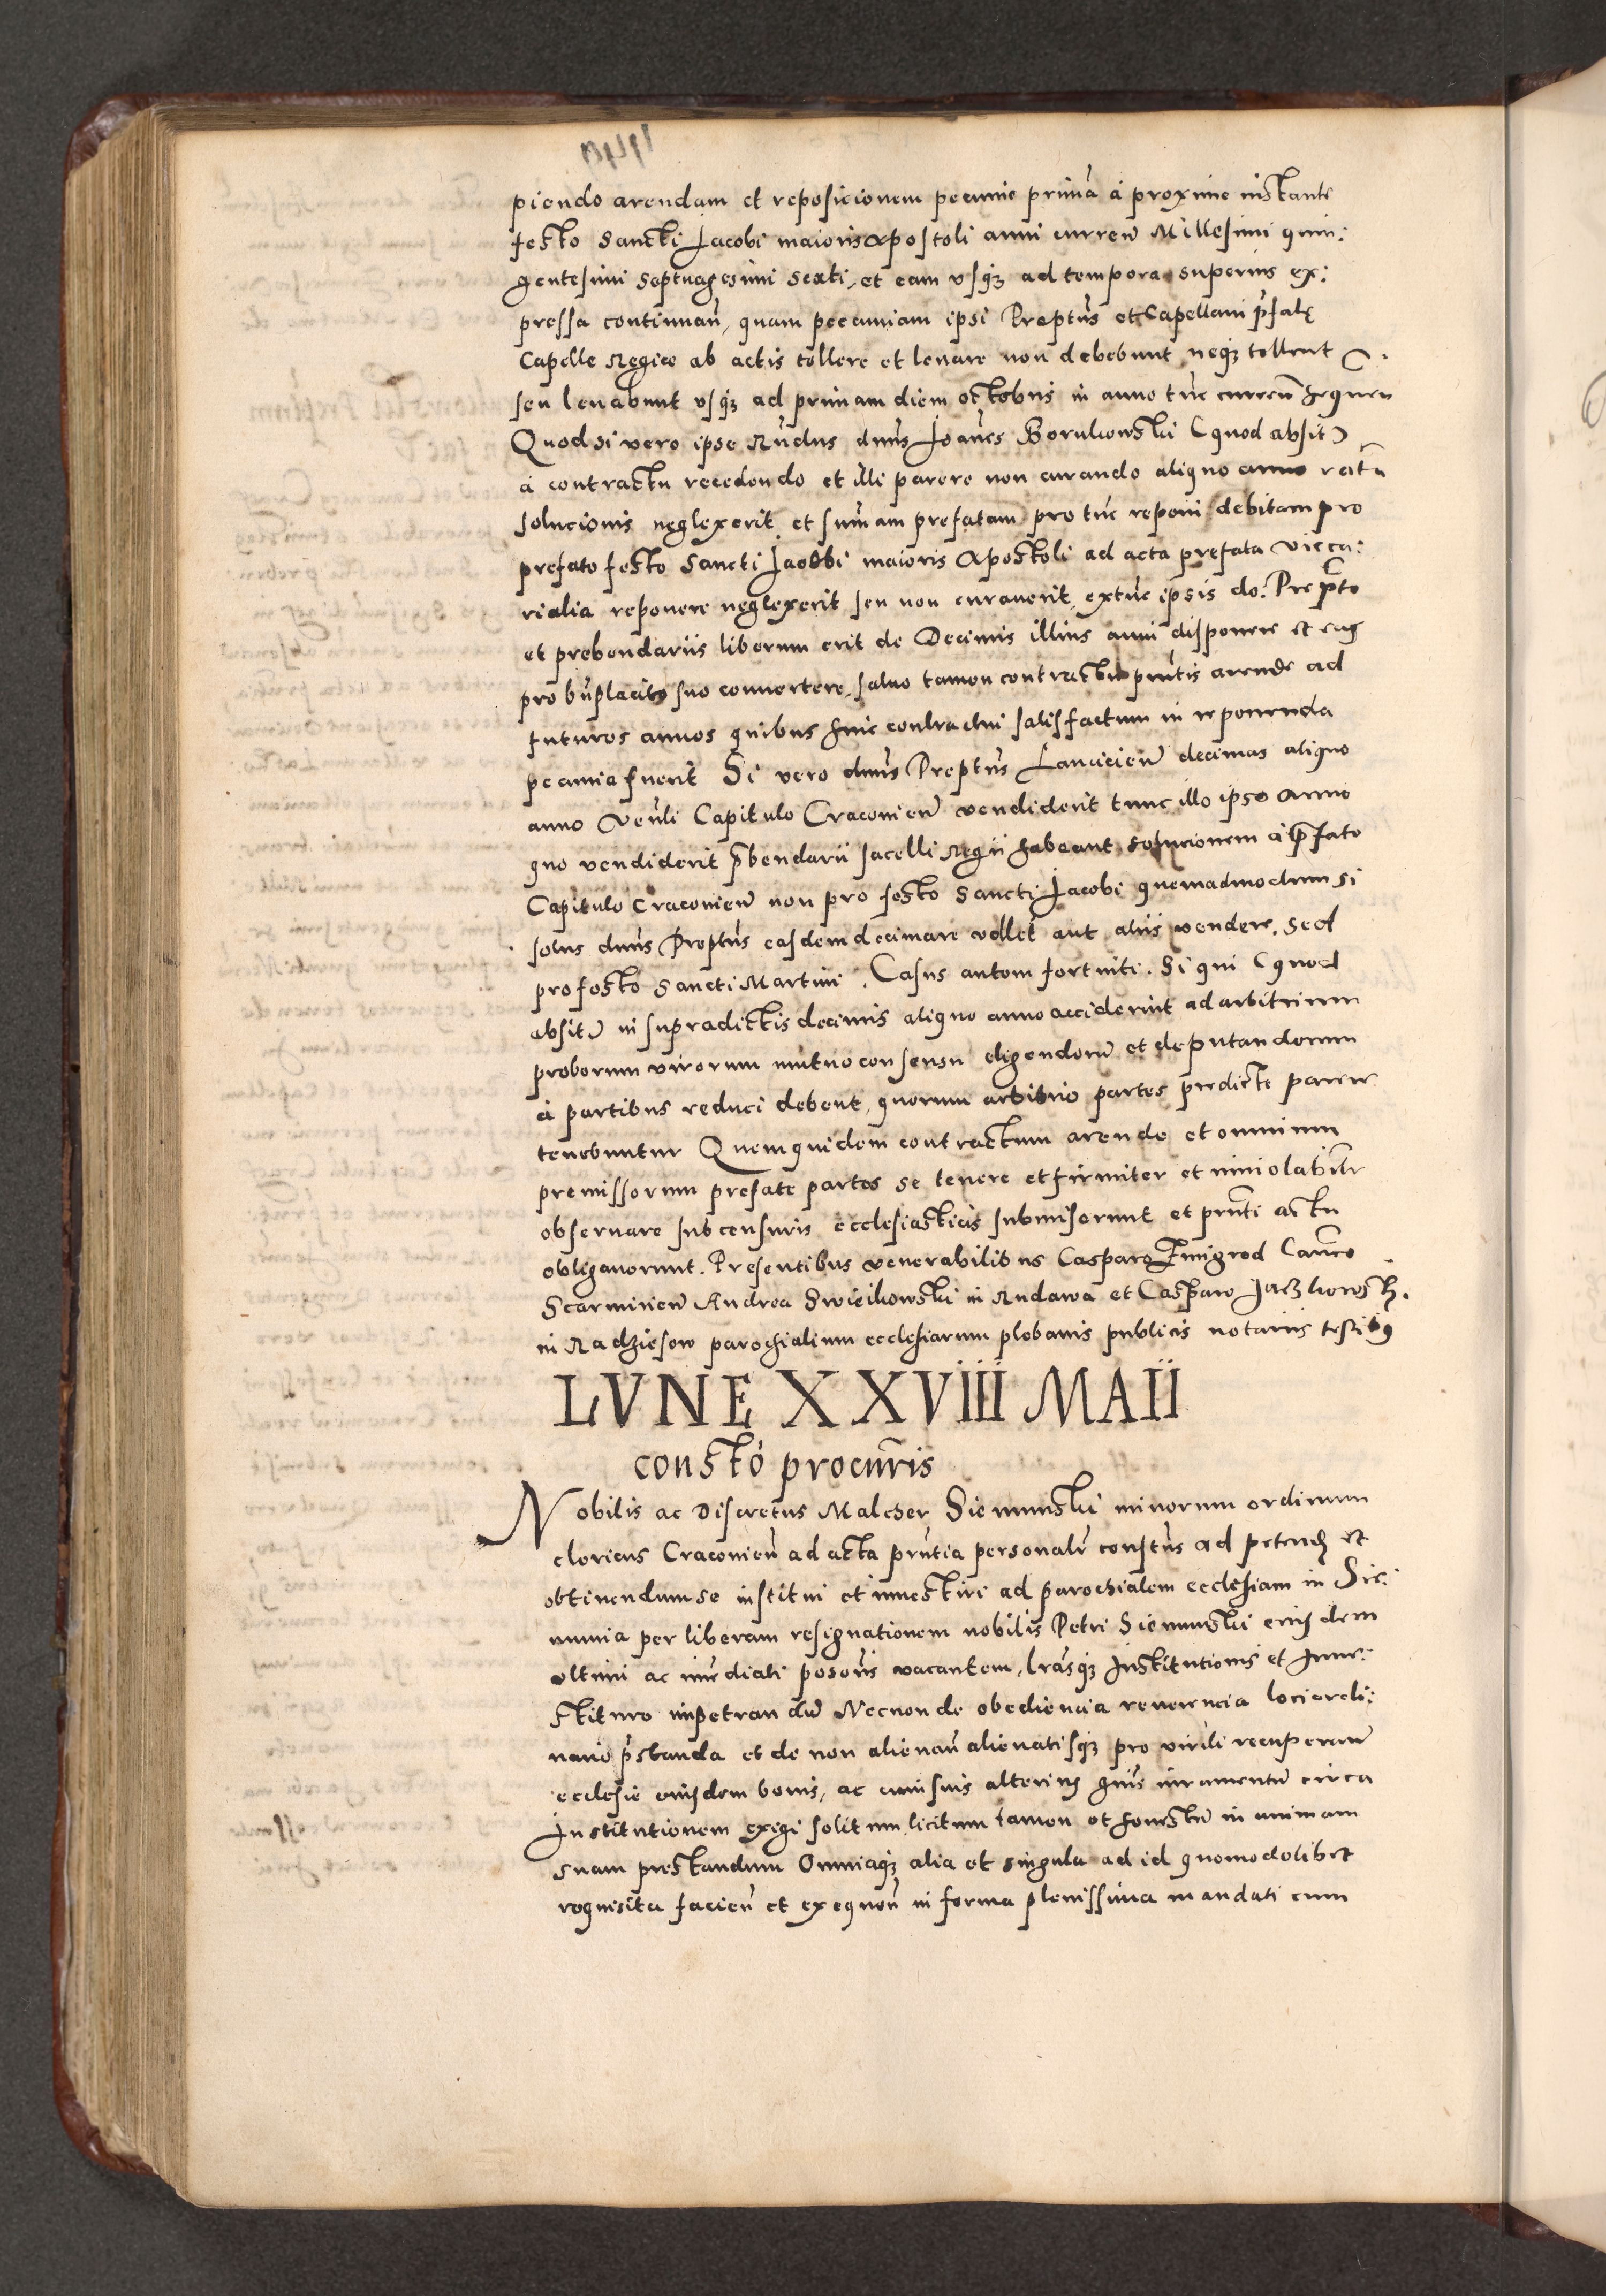 piendo arendam et reposicionem pecunie primā a proxime instante
festo Sancti Jacobi maioris apostoli anni curreñ Millesimi quin:
gentesimi Septuagesimi Sexti, et eam usqz ad tempora superius ex:
pressa continuañ, quam pecuniam ipsi Preptus et Capellani p̃fatę
Capelle Regiæ ab actis tollere et levare non debebunt neqz tollent
seu levabunt usqz ad primam diem octobris in anno tūc curreñ sequeñ
Quod si vero ipse Rn̄dus dnūs Joānes Borukowski (quod absit)
a contractu recedendo et illi parere non curando aliquo anno
solucionis neglexerit et sum̄am prefatam pro tūc reponi debitam pro
prefato festo Sancti Jacobi maioris Apostoli ad acta prefata vicca:
rialia reponere neglexerit seu non curaverit, extūc ipsis do: Prep̄to
et prebendariis liberum erit de Decimis illius anni disponere et eas
pro bn̄placito suo convertere, salvo tamen contractu pn̄tis arendæ ad
futuros annos quibus huic contractui satisfactum in reponenda
pecunia fuerit Si vero dnūs Preptūs Lancicieñ decimas aliquo
anno Ven̄li Capitulo Cracovieñ vendiderit tunc illo ipso anno
quo vendiderit p̄bendarii sacelli Regii habeant solucionem a p̄fato
Capitulo Cracovieñ non pro festo Sancti Jacobi quemadmodum si
solus dnūs Preptūs easdem decimare vellet aut aliis vendere, sed
pro festo Sancti Martini. Casus autem fortuiti. Si qui (quod
absit) in supradictis decimis aliquo anno acciderint ad arbitrium
proborum virorum mutuo consensu eligendorū et deputandorum
a partibus reduci debent, quorum arbitrio partes p̄dicte parere
tenebuntur Quemquidem contractum arende et omnium
premissorum prefate partes se tenere et firmiter et inviolabilr̄
observare sub censuris ecclesiasticis submiserunt et pn̄ti actu
obligaverunt. Presentibus venerabilibus Casparo Zmigrod Can̄co
Scarmirieñ Andrea Swiecikowski in Rudawa et Casparo
in Radziesow parochialium ecclesiarum plebanis publicis notariis testibȝ
LVNE XXVIII MAII
constō procur̄is
Nobilis ac Discretus Malcher Siemunski minorum ordinum
clericus Cracovieñ ad acta pn̄tia personalr̄ constūs ad petend et
obtinendum se institui et investiri ad parochialem ecclesiam in Sie:
munia per liberam resignationem nobilis Petri Siemunski eiusdem
ultimi ac im̄ediati possoris vacantem, lrāsqz Institutionis et Inve:
stiture impetrandū Necnon de obediencia reverencia loci ordi:
nario p̄standa et de non alienañ alienatisqz pro virili recuperañ
ecclesie eiusdem bonis, ac cuiusvis alterius gn̄is iuramentū circa
Institutionem exigi solitum licitum tamen et honestū in animam
suam prestandum Omniaqz alia et singula ad id quomodolibet
requisita facieñ et exequeñ in forma plenissima mandati cum